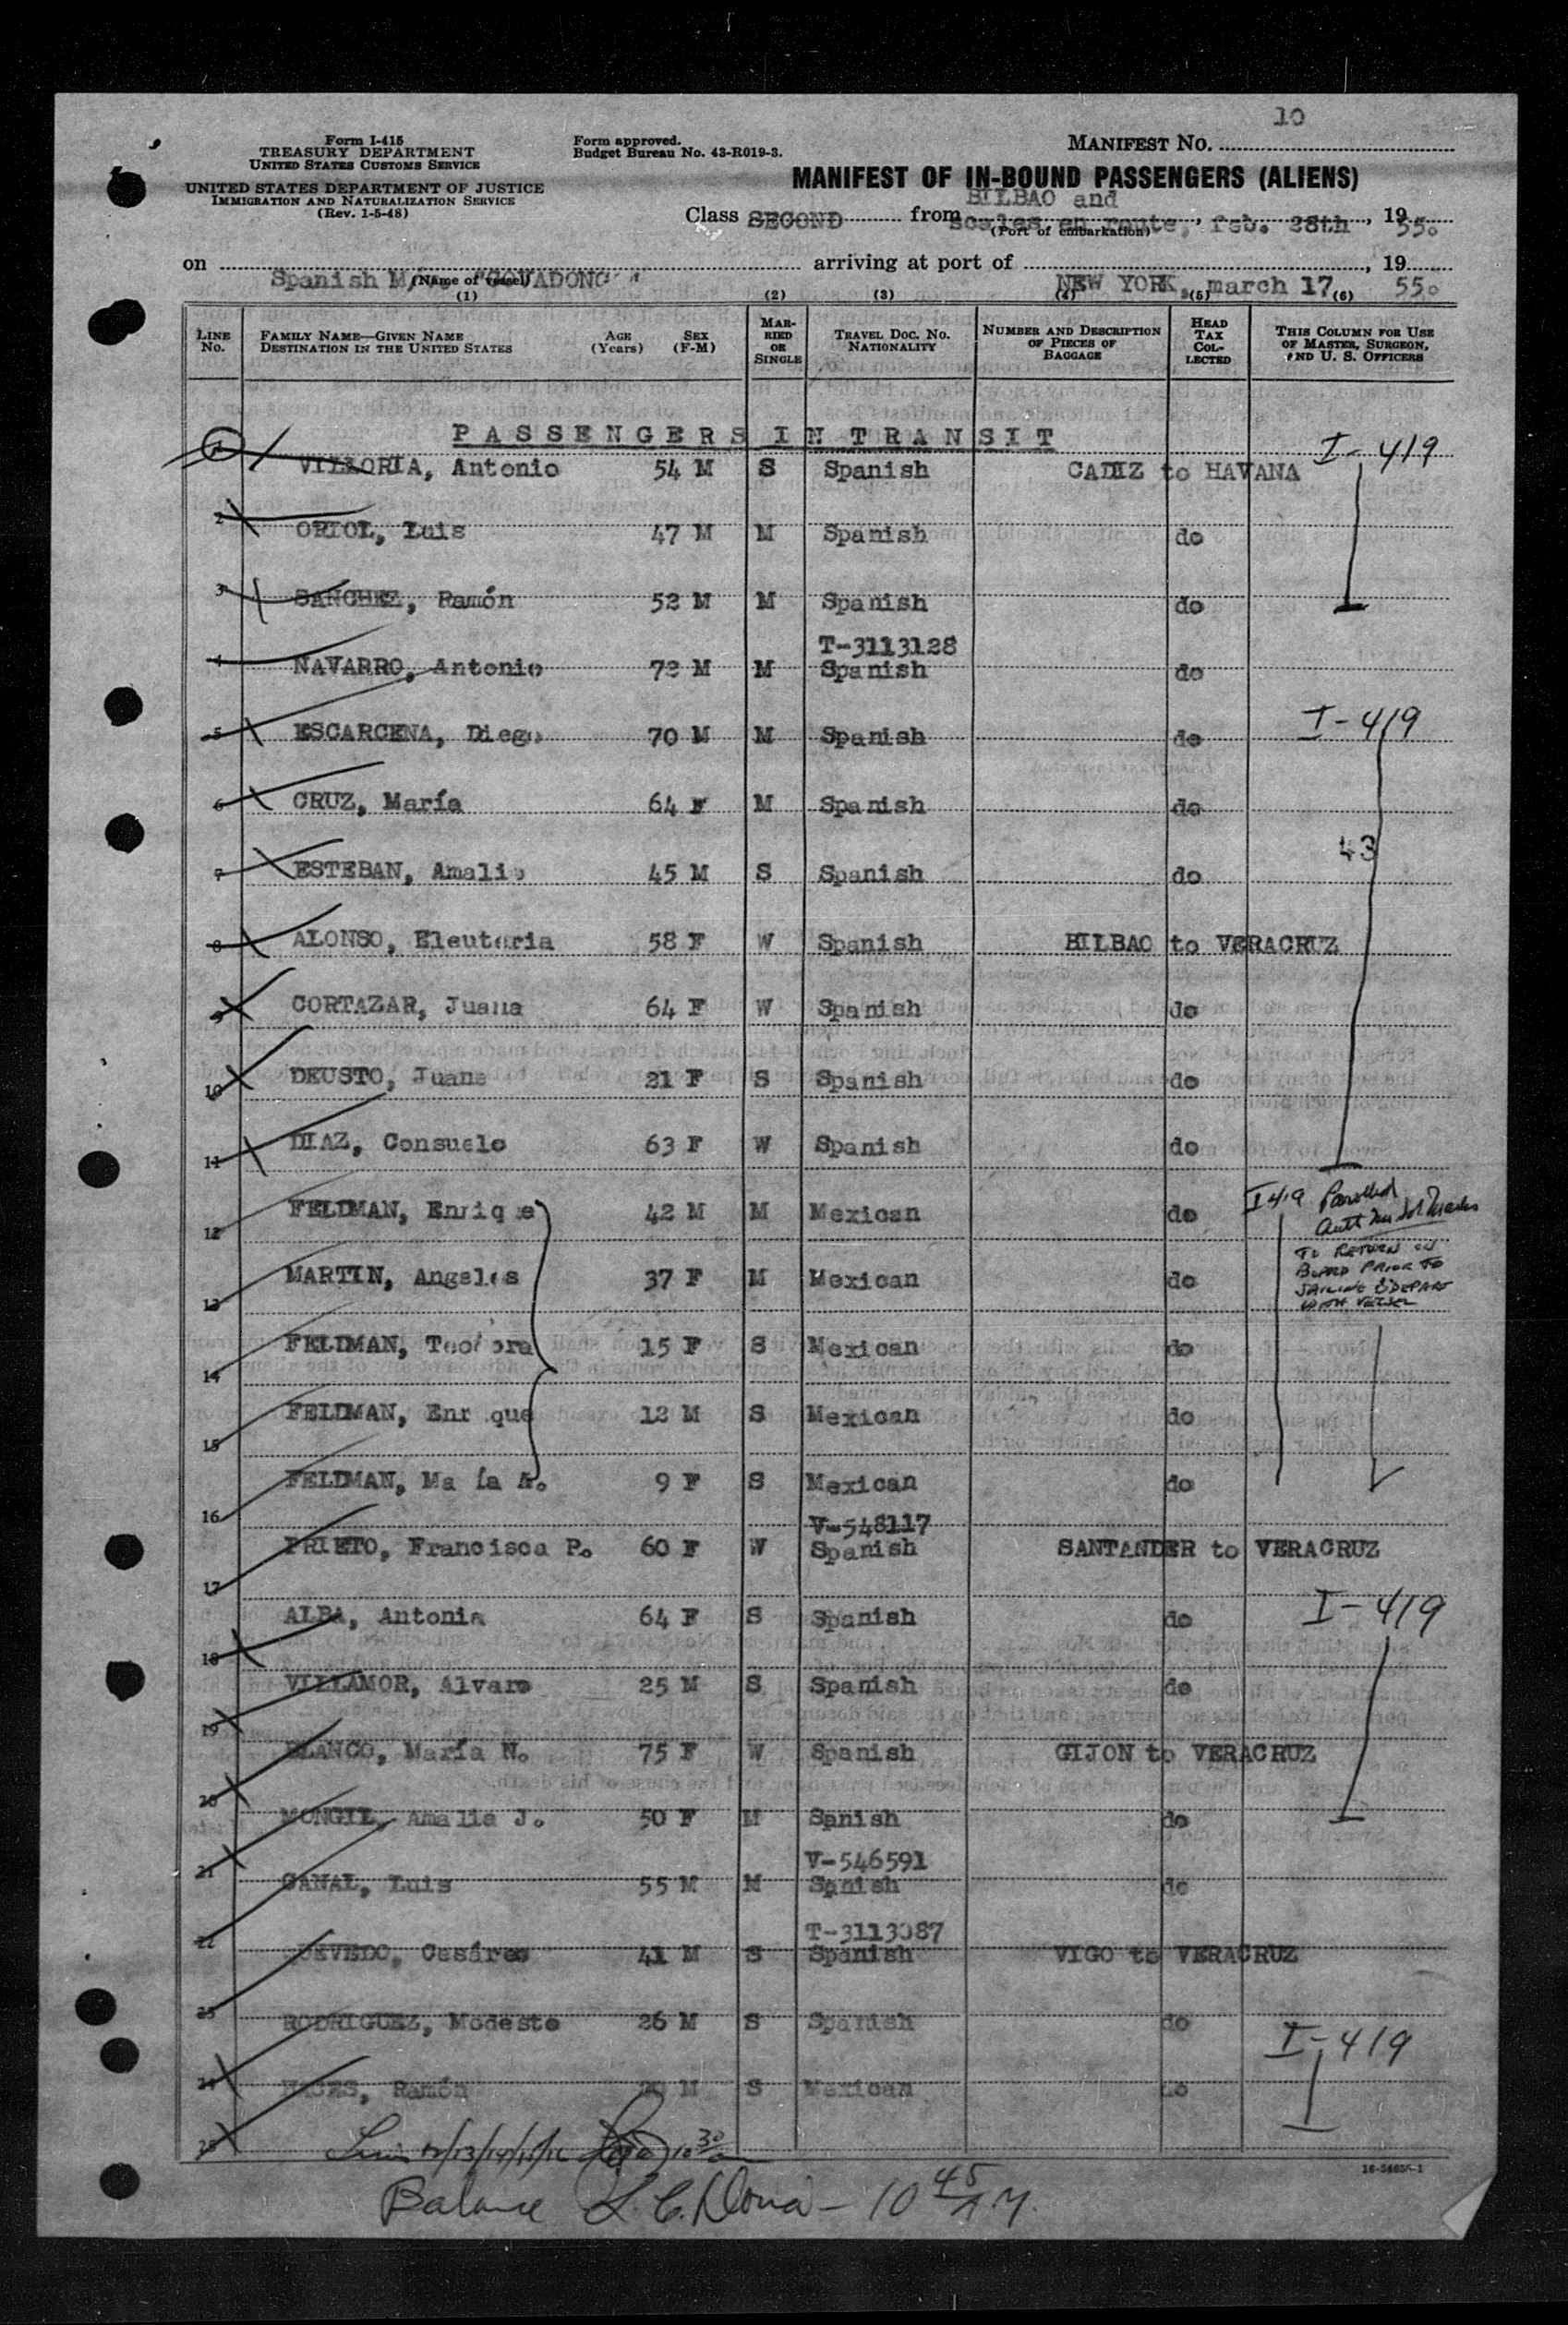 10
Form I-415
TREASURY DEPARTMENT
UNITED STATES CUSTOMS SERVICE
UNITED STATES DEPARTMENT OF JUSTICE
IMMIGRATION AND NATURALIZATION SERVICE
(Rev. 1-5-48)
Form approved.
Budget Bureau No. 43-R019-3.
MANIFEST NO.
MANIFEST OF IN-BOUND PASSENGERS (ALIENS)
BILBAO and
Class SECOND from scales en route, feb. 28th, 19 55.
(Port of embarkation)
on Spanish arriving at port of NEW YORK, march 17, 19 55.
(Name of vessel)
(1) (2) (3) (4) (5) (6)
LINE NO. FAMILY NAME—GIVEN NAME DESTINATION IN THE UNITED STATES AGE (Years) SEX (F-M) MARRIED OR SINGLE TRAVEL DOC. NO. NATIONALITY NUMBER AND DESCRIPTION OF PIECES OF BAGGAGE HEAD TAX COLLECTED THIS COLUMN FOR USE OF MASTER, SURGEON, AND U. S. OFFICERS
PASSENGERS IN TRANSIT
1 VILLORIA, Antonio 54 M S Spanish CADIZ to HAVANA I-419
2 ORIOL, Luis 47 M M Spanish do
3 SANCHEZ, Ramón 52 M M Spanish do
T-3113128
4 NAVARRO, Antonio 72 M M Spanish do
5 ESCARCENA, Diego 70 M M Spanish do I-419
6 CRUZ, María 64 F M Spanish do
43
7 ESTEBAN, Amalio 45 M S Spanish do
8 ALONSO, Eleuteria 58 F W Spanish BILBAO to VERACRUZ
9 CORTAZAR, Juana 64 F W Spanish do
10 DEUSTO, Juana 21 F S Spanish do
11 DIAZ, Consuelo 63 F W Spanish do
12 FELDMAN, Enrique 42 M M Mexican do I 419 Parolled
TO RETURN ON
BOARD PRIOR TO
SAILING & DEPART
WITH VESSEL
13 MARTIN, Angeles 37 F M Mexican do
14 FELDMAN, Teodora 15 F S Mexican do
15 FELDMAN, Enrique 12 M S Mexican do
16 FELDMAN, María A. 9 F S Mexican do
V-548117
17 PRIETO, Francisca P. 60 F W Spanish SANTANDER to VERACRUZ
18 ALBA, Antonia 64 F S Spanish do I-419
19 VILLAMOR, Alvaro 25 M S Spanish do
20 BLANCO, María N. 75 F W Spanish GIJON to VERACRUZ
21 MONGIL, Amalia J. 50 F M Spanish do
V-546591
22 CANAL, Luis 55 M M Spanish do
T-3113087
23 Cesáreo 41 M S Spanish VIGO to VERACRUZ
24 RODRIGUEZ, Modesto 26 M S Spanish do I-419
25 Ramón M S Mexican do
12/13/14/15/16 10 30
16-54605-1
Balance 10 45 AM.